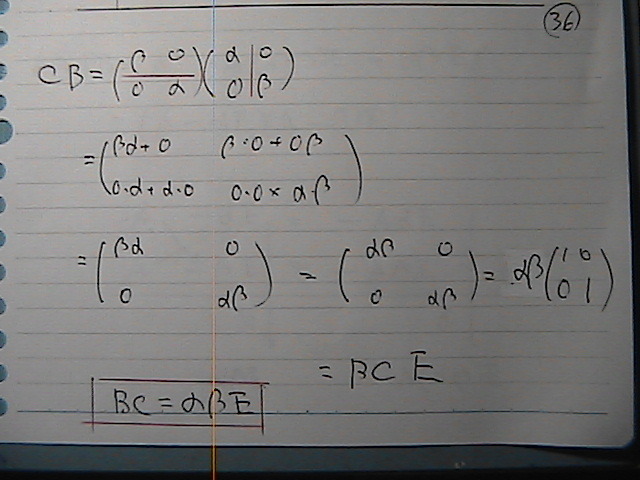 36
CB = (β 0 0 α)(α 0 0 β)
= (βα+0 β·0+0β
0·α+α·0 0·0×α·β)
= (βα 0 0 αβ) = (αβ 0 0 αβ) = αβ(1 0 0 1)
= BCE
BC = αβE